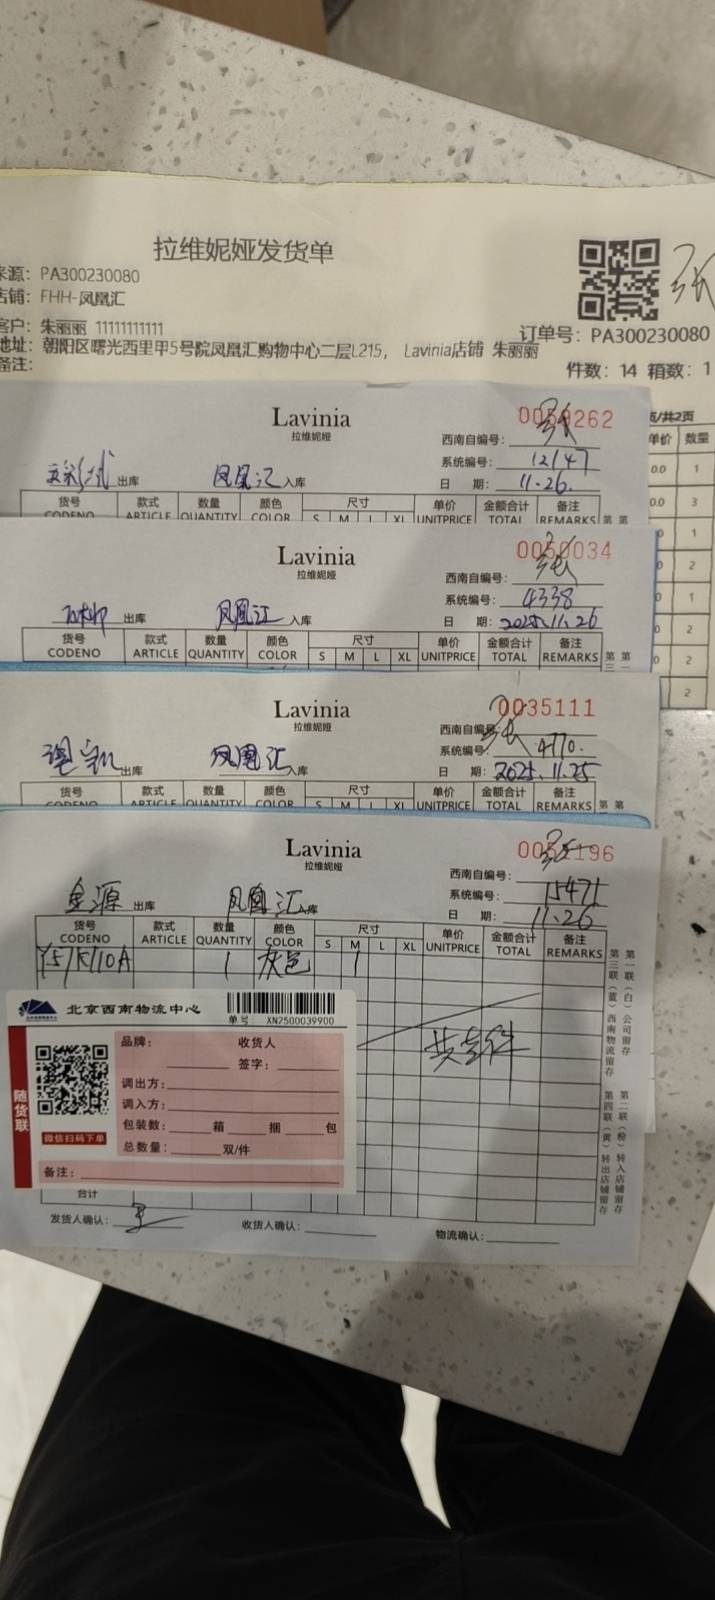 拉维妮娅发货单
来源：PA300230080
店铺：FHH-凤凰汇
客户：朱丽丽 11111111111
订单号：PA300230080
地址：朝阳区曙光西里甲5号院凤凰汇购物中心二层L215， Lavinia店铺 朱丽丽
备注：
件数：14 箱数：1
页/共2页
单价 数量
0.0 1
0.0 3
0 1
0 2
0 1
0 2
0 2
2
Lavinia
拉维妮娅
西南自编号：
系统编号：12147
出库 凤凰汇入库
日 期：11.26.
货号 款式 数量 颜色 尺寸 单价 金额合计 备注
CODENO ARTICLE QUANTITY COLOR S M L XL UNITPRICE TOTAL REMARKS
Lavinia
0050034
拉维妮娅
西南自编号：
系统编号：4338
出库 凤凰汇入库
日 期：2025.11.26
货号 款式 数量 颜色 尺寸 单价 金额合计 备注
CODENO ARTICLE QUANTITY COLOR S M L XL UNITPRICE TOTAL REMARKS
Lavinia
0035111
拉维妮娅
西南自编号：
系统编号：4770.
出库 凤凰汇入库
日 期：2025.11.25
货号 款式 数量 颜色 尺寸 单价 金额合计 备注
CODENO ARTICLE QUANTITY COLOR S M L XL UNITPRICE TOTAL REMARKS
Lavinia
拉维妮娅
西南自编号：
系统编号：15471
金源出库 凤凰汇入库
日 期：11.26
货号 款式 数量 颜色 尺寸 单价 金额合计 备注
CODENO ARTICLE QUANTITY COLOR S M L XL UNITPRICE TOTAL REMARKS
1 灰色 1
共壹件
北京西南物流中心
单号： XN2500039900
随货联
品牌： 收货人
签字：
调出方：
调入方：
包装数： 箱 捆 包
总数量： 双/件
微信扫码下单
备注：
合计
发货人确认： 收货人确认： 物流确认：
第一联（白）公司留存
第二联（粉）转入店铺留存
第三联（蓝）西南物流留存
第四联（黄）转出店铺留存